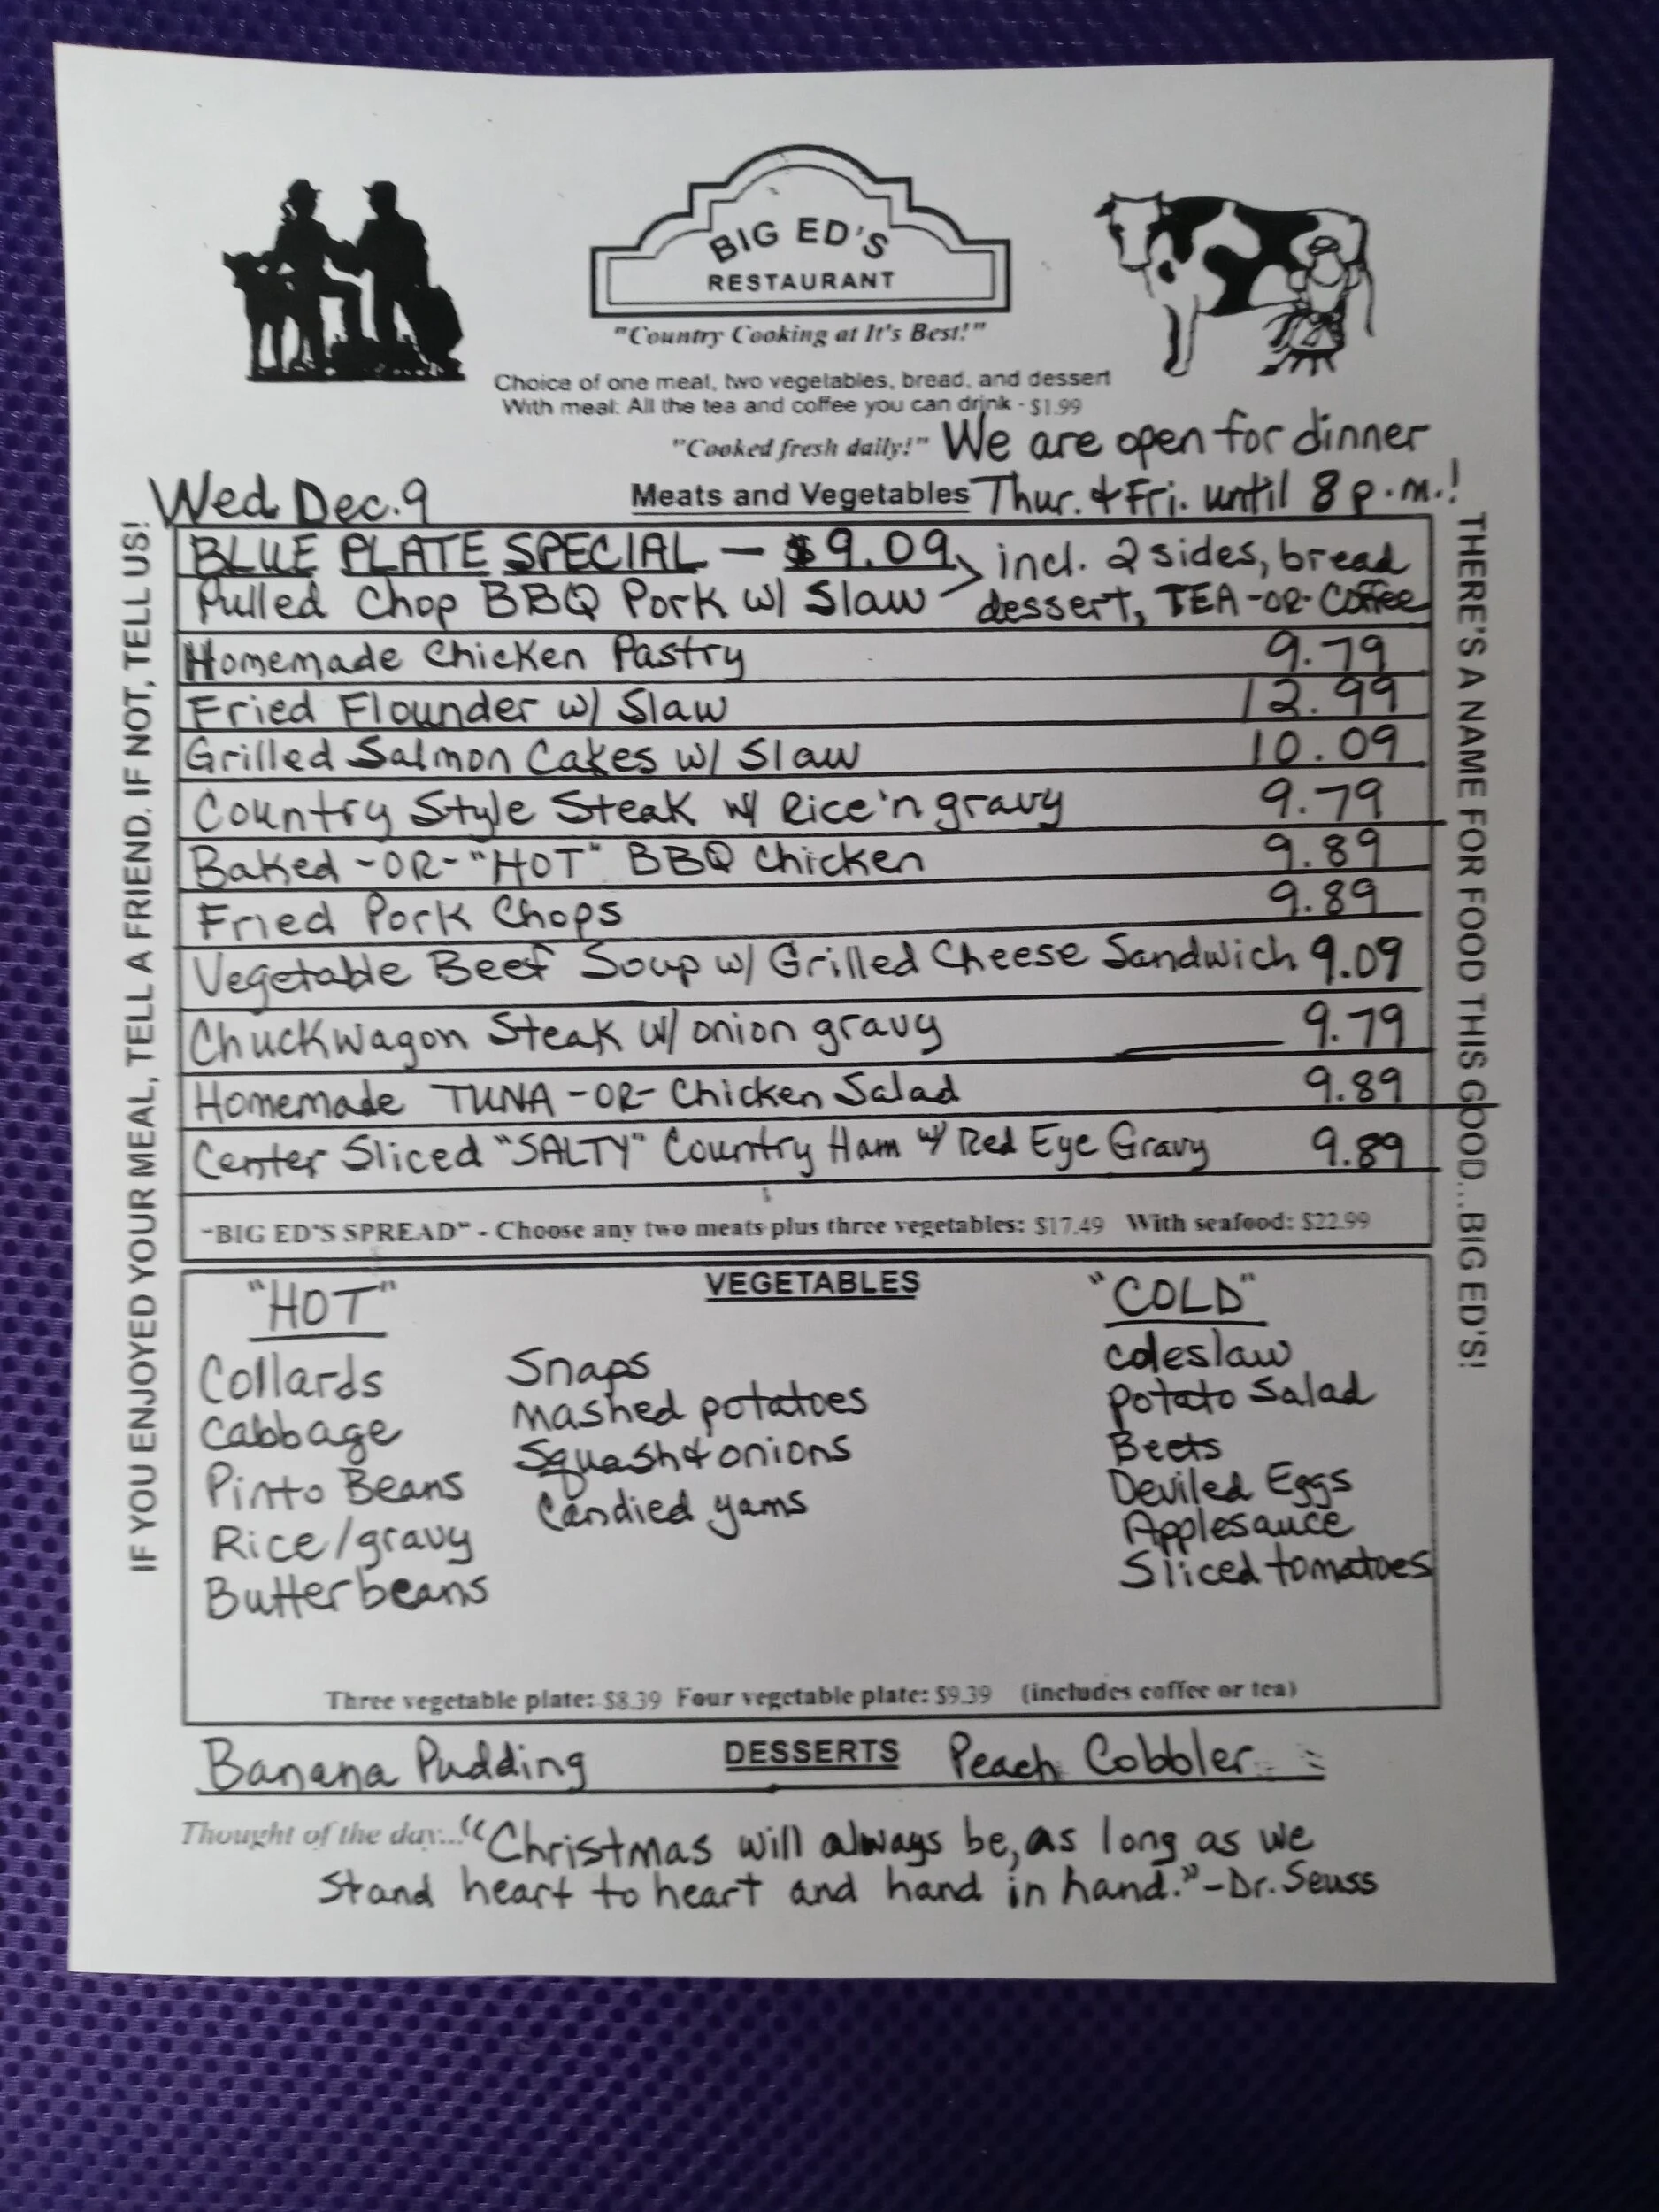 BIG ED'S
RESTAURANT
"Country Cooking at It's Best!"
Choice of one meat, two vegetables, bread, and dessert
With meal: All the tea and coffee you can drink - $1.99
"Cooked fresh daily!" We are open for dinner
Wed. Dec. 9 Meats and Vegetables Thur. & Fri. until 8 p.m.!
BLUE PLATE SPECIAL - $9.09 incl. 2 sides, bread
Pulled Chop BBQ Pork w/ Slaw dessert, TEA -OR- Coffee
Homemade Chicken Pastry 9.79
Fried Flounder w/ Slaw 12.99
Grilled Salmon Cakes w/ Slaw 10.09
Country Style Steak w/ Rice 'n gravy 9.79
Baked -OR- "HOT" BBQ Chicken 9.89
Fried Pork Chops 9.89
Vegetable Beef Soup w/ Grilled Cheese Sandwich 9.09
Chuckwagon Steak w/ onion gravy 9.79
Homemade TUNA -OR- Chicken Salad 9.89
Center Sliced "SALTY" Country Ham w/ Red Eye Gravy 9.89
"BIG ED'S SPREAD" - Choose any two meats plus three vegetables: $17.49 With seafood: $22.99
IF YOU ENJOYED YOUR MEAL, TELL A FRIEND. IF NOT, TELL US!
THERE'S A NAME FOR FOOD THIS GOOD...BIG ED'S!
VEGETABLES
"HOT"
Collards
Cabbage
Pinto Beans
Rice/gravy
Butterbeans
Snaps
Mashed potatoes
Squash & onions
Candied yams
"COLD"
coleslaw
potato Salad
Beets
Deviled Eggs
Applesauce
Sliced tomatoes
Three vegetable plate: $8.39 Four vegetable plate: $9.39 (includes coffee or tea)
Banana Pudding DESSERTS Peach Cobbler
Thought of the day... "Christmas will always be, as long as we
stand heart to heart and hand in hand." - Dr. Seuss